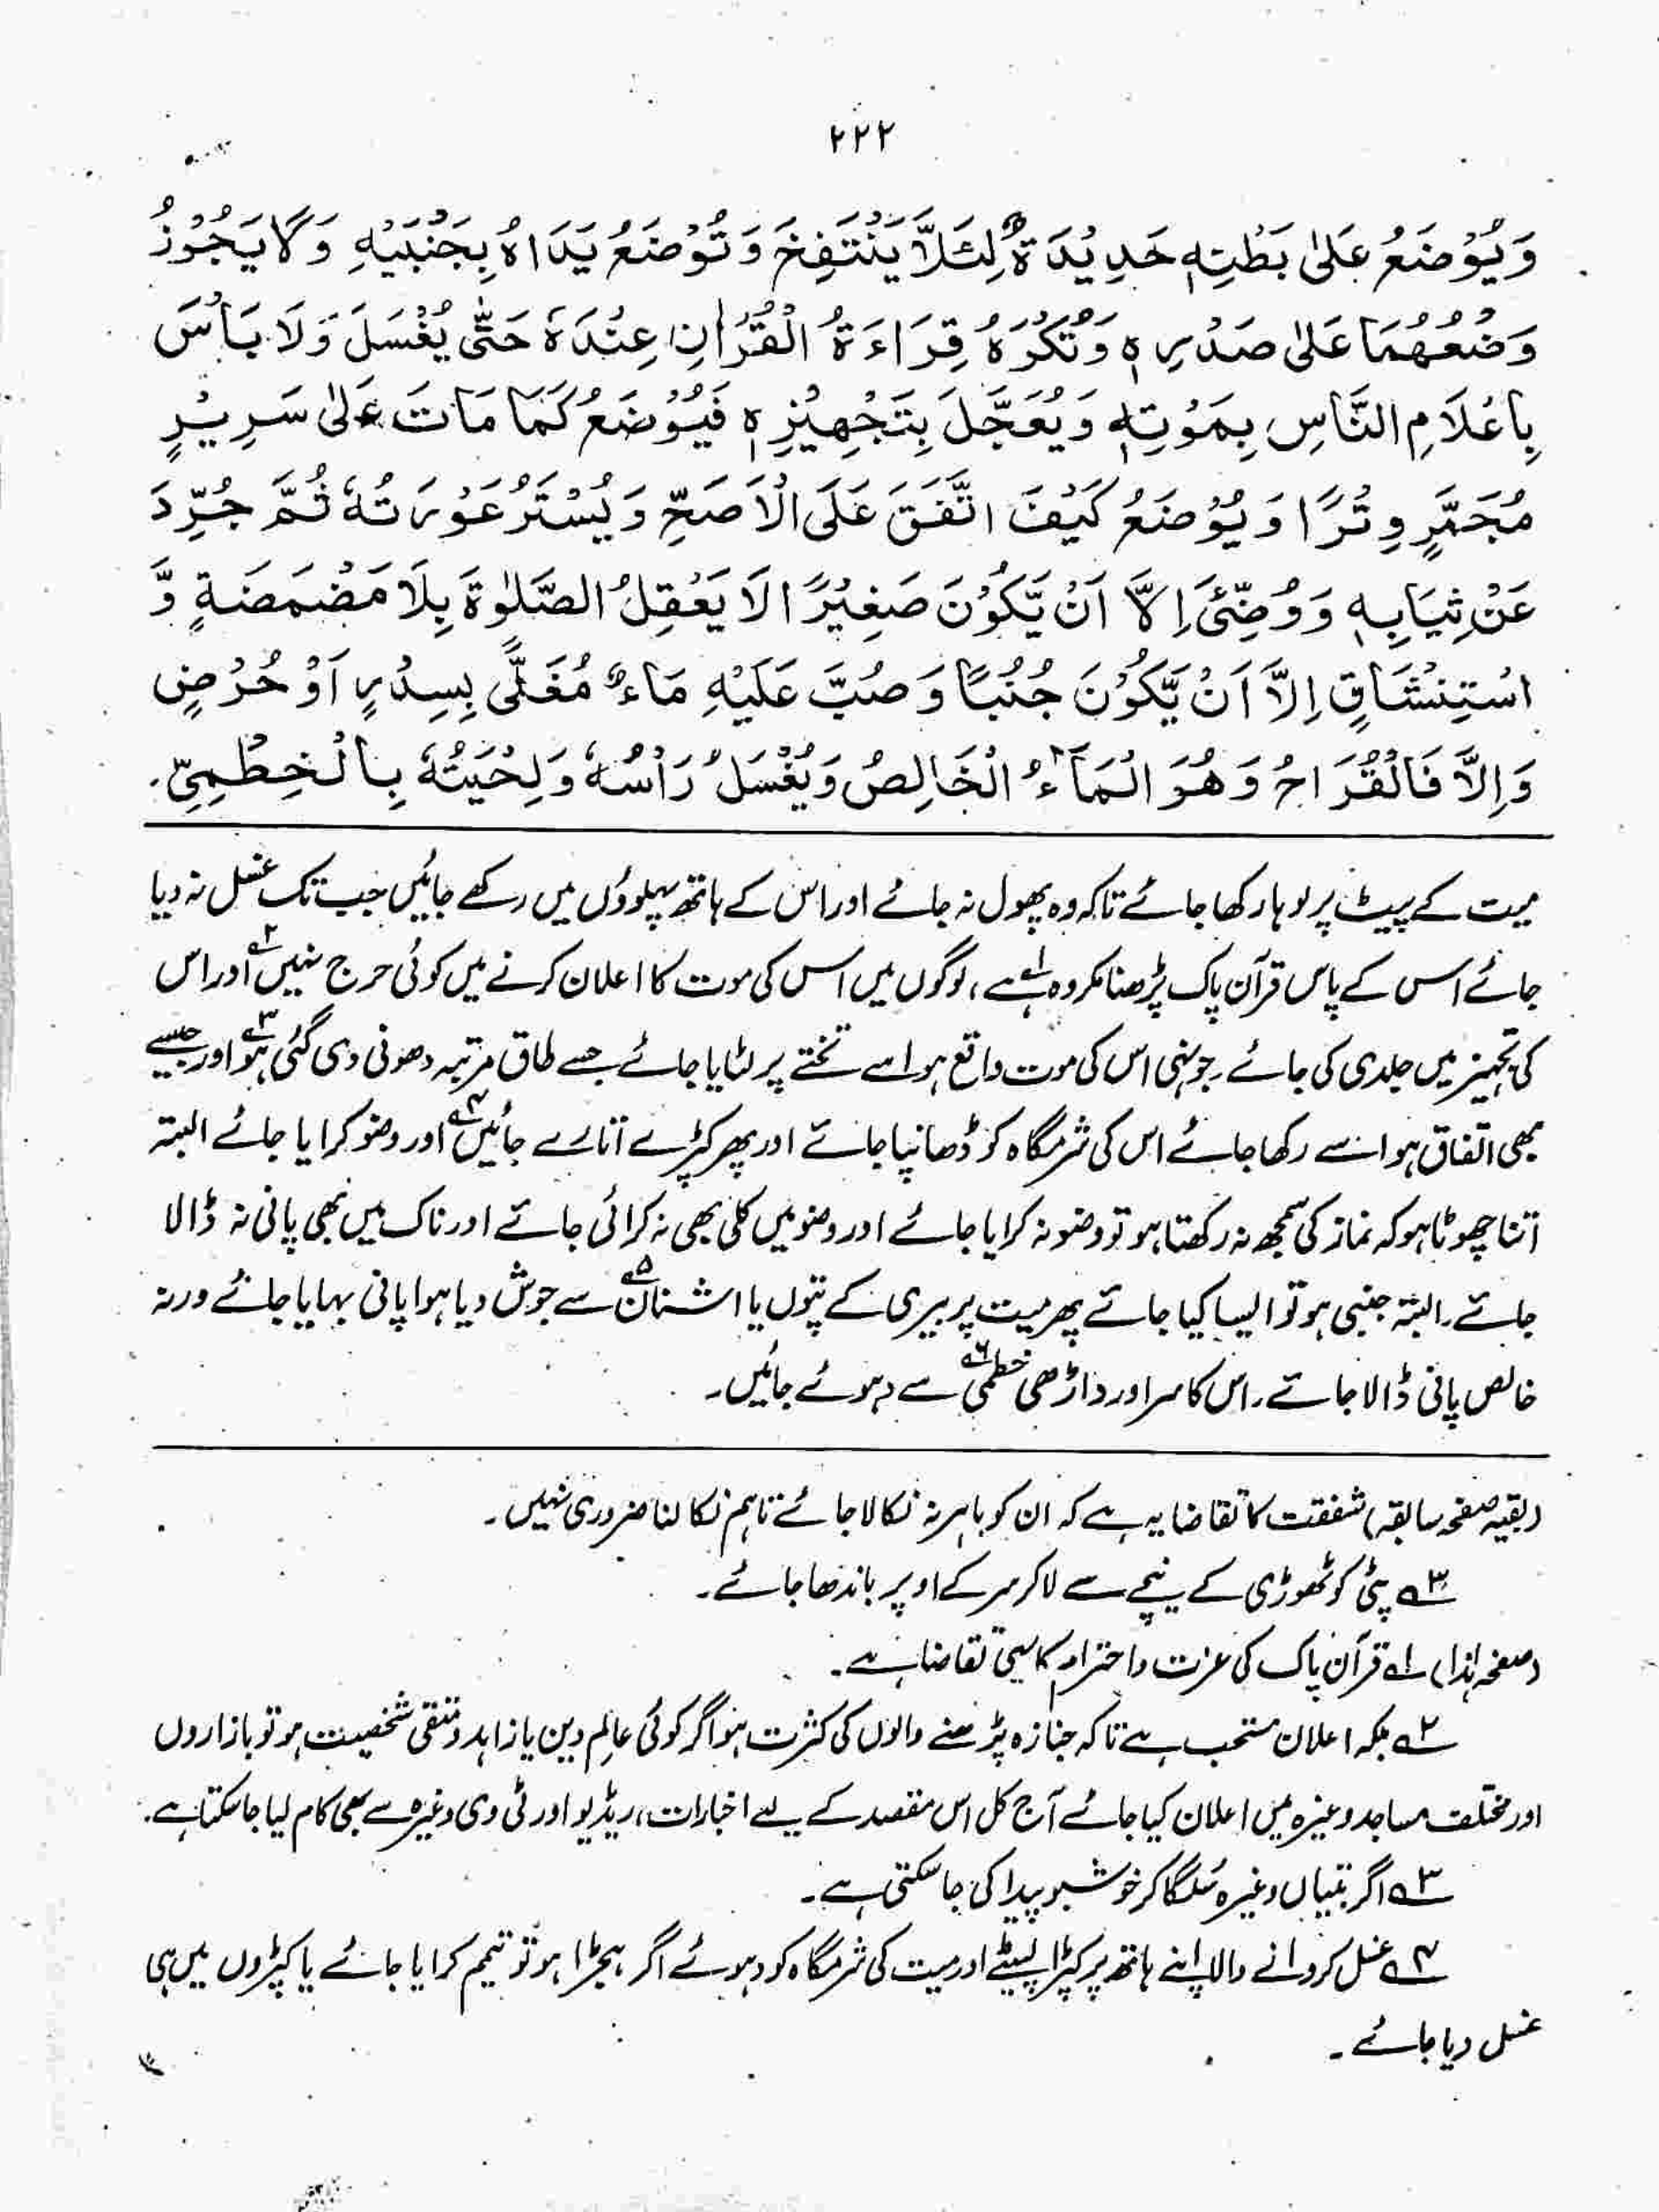 ۲۲۲
وَيُوْضَعُ عَلىٰ بَطْنِهٖ حَدِيْدَةٌ لِئَلَّا يَنْتَفِخَ وَتُوْضَعُ يَدَاهُ بِجَنْبَيْهِ وَلَا يَجُوْزُ
وَضْعُهُمَا عَلىٰ صَدْرِهٖ وَتُكْرَهُ قِرَاءَةُ الْقُرْاٰنِ عِنْدَهٗ حَتّٰى يُغْسَلَ وَلَا بَأْسَ
بِاعْلَامِ النَّاسِ بِمَوْتِهٖ وَيُعَجَّلَ بِتَجْهِيْزِهٖ فَيُوْضَعُ كَمَا مَاتَ عَلىٰ سَرِيْرٍ
مُجَمَّرٍ وِتْرًا وَيُوْضَعُ كَيْفَ اتَّفَقَ عَلَى الْاَصَحِّ وَيُسْتَرُ عَوْرَتُهٗ ثُمَّ جُرِّدَ
عَنْ ثِيَابِهٖ وَوُضِّئَ اِلَّا اَنْ يَّكُوْنَ صَغِيْرًا لَا يَعْقِلُ الصَّلٰوةَ بِلَا مَضْمَضَةٍ وَّ
اسْتِنْشَاقٍ اِلَّا اَنْ يَّكُوْنَ جُنُبًا وَصُبَّ عَلَيْهِ مَاءٌ مُغَلًّى بِسِدْرٍ اَوْ حُرْضٍ
وَاِلَّا فَالْقُرَاحُ وَهُوَ الْمَآءُ الْخَالِصُ وَيُغْسَلُ رَأْسُهٗ وَلِحْيَتُهٗ بِالْخِطْمِيِّ۔
میت کے پیٹ پر لوہا رکھا جائے تاکہ وہ پھول نہ جائے اور اس کے ہاتھ پہلوؤں میں رکھے جائیں جب تک غسل نہ دیا
جائے اس کے پاس قرآن پاک پڑھنا مکروہ ہے۱، لوگوں میں اس کی موت کا اعلان کرنے میں کوئی حرج نہیں۲ اور اس
کی تجہیز میں جلدی کی جائے۔ جونہی اس کی موت واقع ہو اسے تختے پر لٹایا جائے جسے طاق مرتبہ دھونی دی گئی ہو۳ اور جیسے
بھی اتفاق ہو اسے رکھا جائے اس کی شرمگاہ کو ڈھانپا جائے اور پھر کپڑے اتارے جائیں۴ اور وضو کرایا جائے البتہ
اتنا چھوٹا ہو کہ نماز کی سمجھ نہ رکھتا ہو تو وضو نہ کرایا جائے اور وضو میں کلی بھی نہ کرائی جائے اور ناک میں بھی پانی نہ ڈالا
جائے۔ البتہ جنبی ہو تو ایسا کیا جائے پھر میت پر بیری کے پتوں یا اشنان۵ سے جوش دیا ہوا پانی بہایا جائے ورنہ
خالص پانی ڈالا جائے۔ اس کا سر اور داڑھی خطمی۶ سے دہوئے جائیں۔
(بقیہ صفحہ سابقہ) شفقت کا تقاضا یہ ہے کہ ان کو باہر نہ نکالا جائے تاہم نکالنا ضروری نہیں۔
۳ پٹی کو ٹھوڑی کے نیچے سے لا کر سر کے اوپر باندھا جائے۔
(صفحہ ہذا) ۱ قرآن پاک کی عزت و احترام کا یہی تقاضا ہے۔
۲ بلکہ اعلان مستحب ہے تاکہ جنازہ پڑھنے والوں کی کثرت ہو اگر کوئی عالم دین یا زاہد و متقی شخصیت ہو تو بازاروں
اور مختلف مساجد وغیرہ میں اعلان کیا جائے آج کل اس مقصد کے لیے اخبارات، ریڈیو اور ٹی وی وغیرہ سے بھی کام لیا جا سکتا ہے۔
۳ اگر بتیاں وغیرہ سُلگا کر خوشبو پیدا کی جا سکتی ہے۔
۴ غسل کروانے والا اپنے ہاتھ پر کپڑا لپیٹے اور میت کی شرمگاہ کو دہوئے اگر ہیجڑا ہو تو تیمم کرایا جائے یا کپڑوں میں ہی
غسل دیا جائے۔